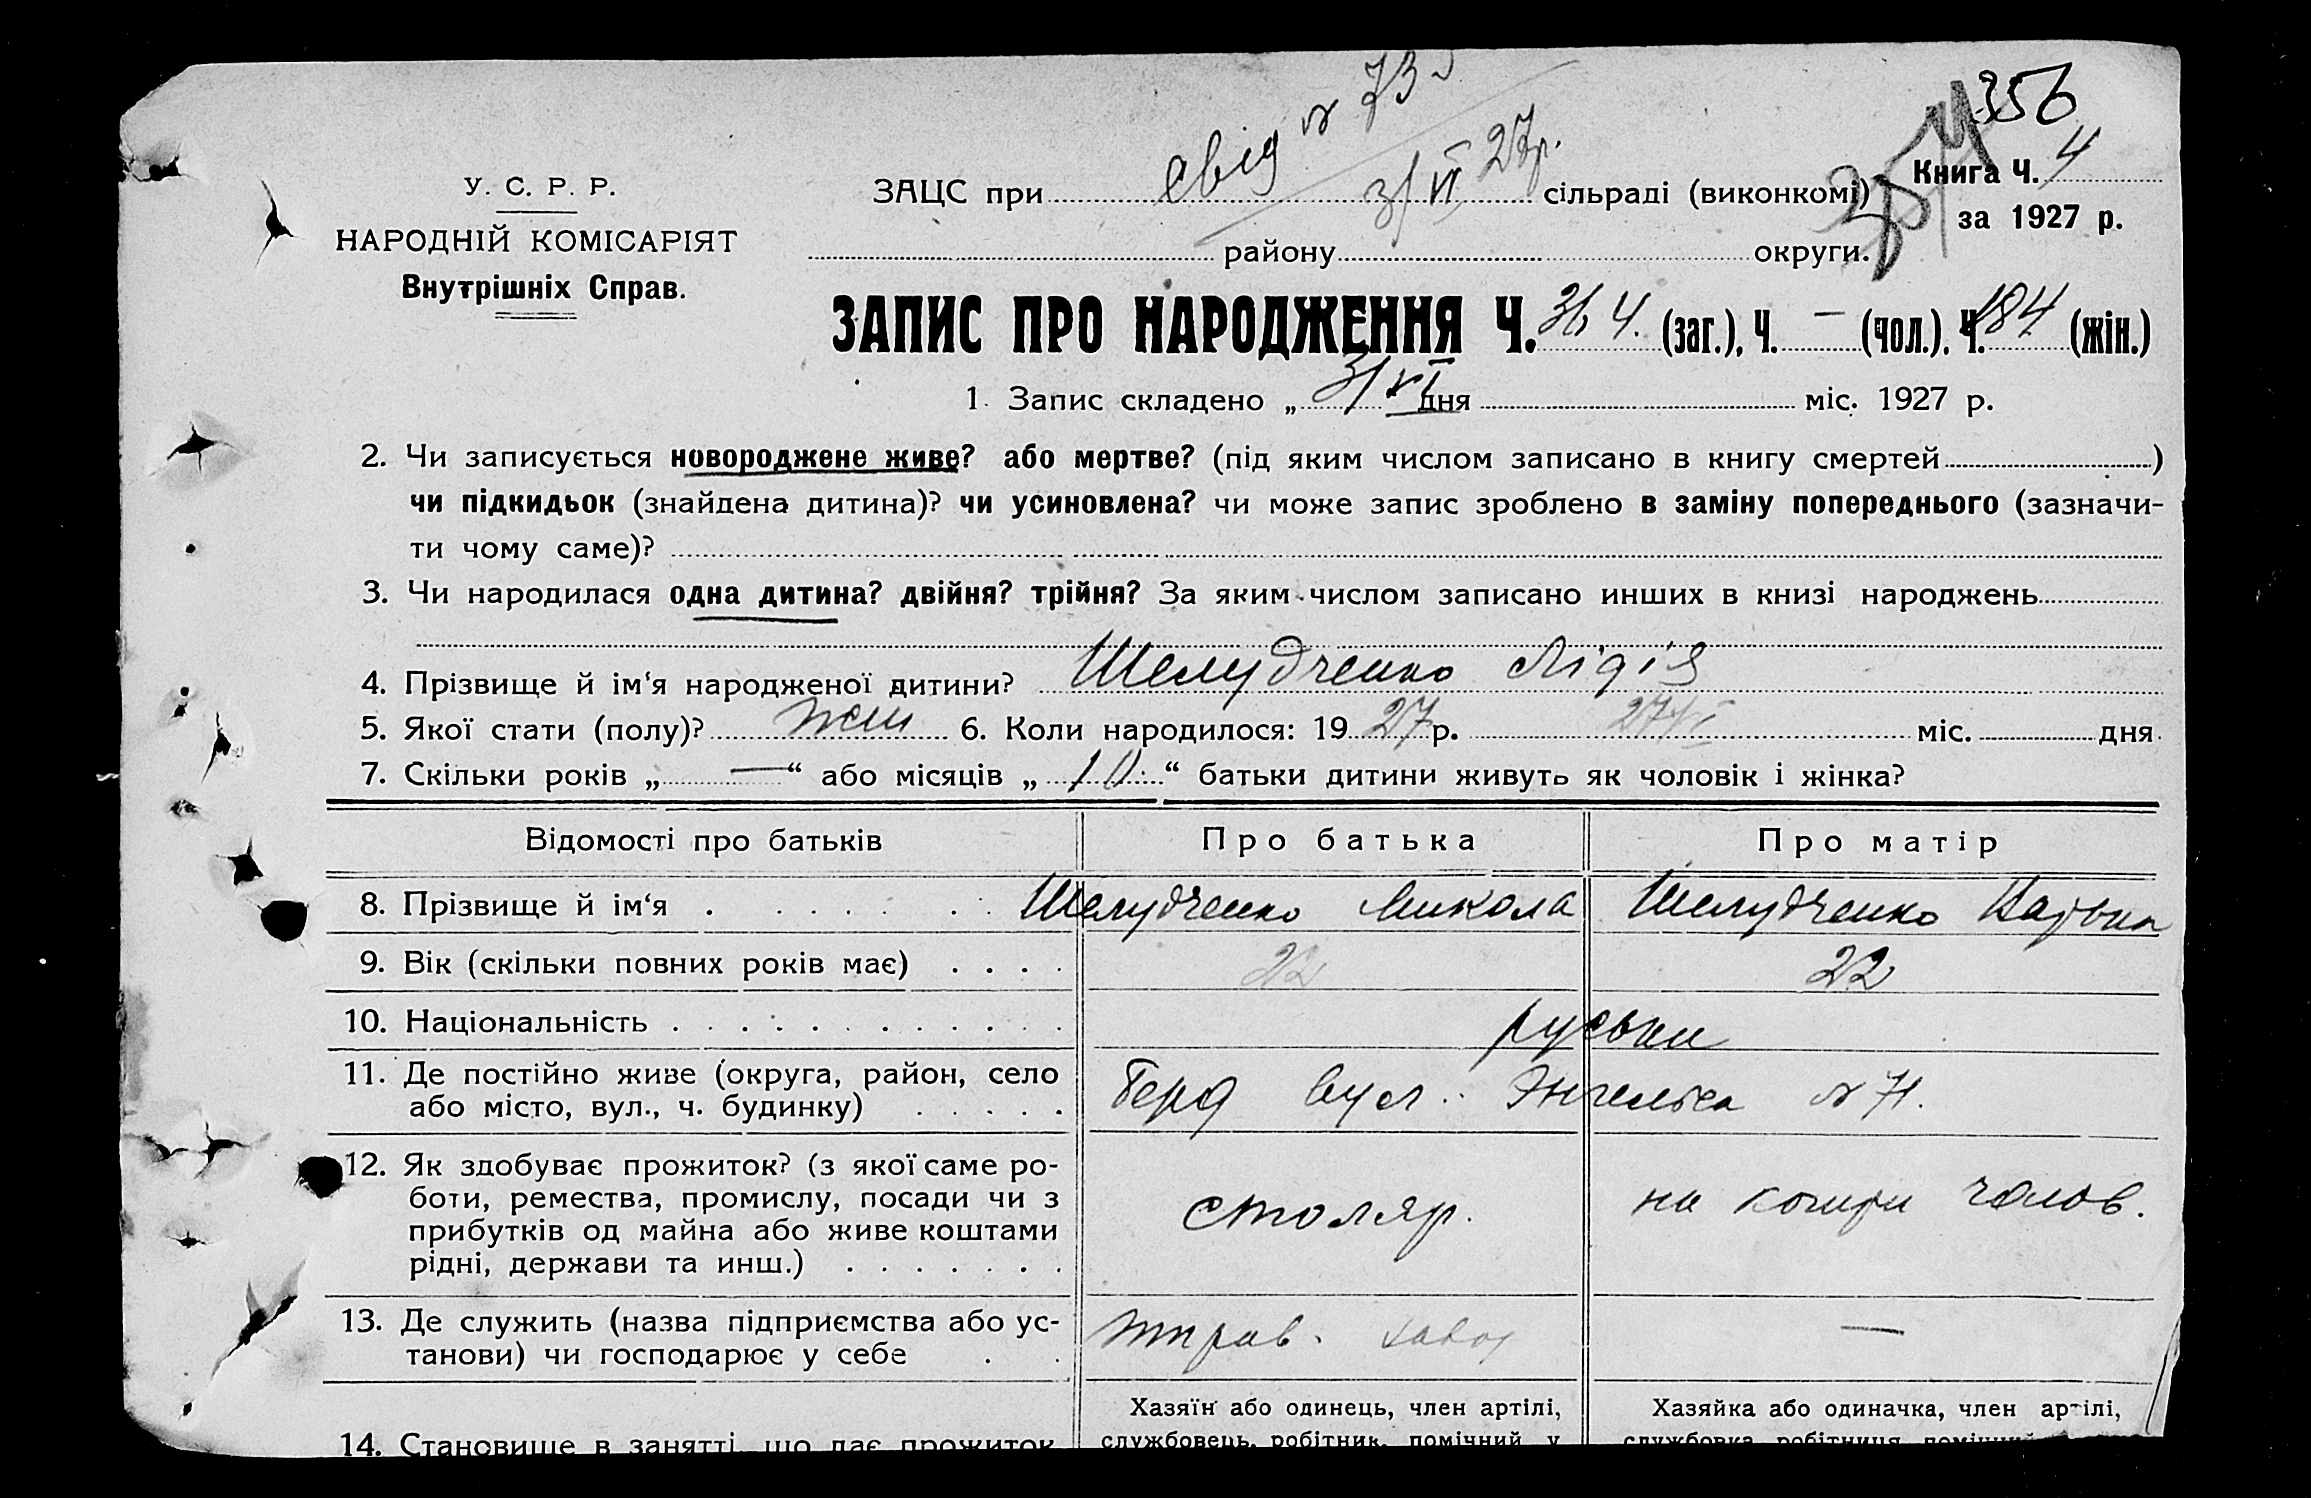 356
Свід № 73
3/VI 27р.
У. С. Р. Р.
НАРОДНІЙ КОМІСАРІЯТ
Внутрішніх Справ.
ЗАЦС при сільраді (виконкомі)
району округи.
Книга Ч. 4
за 1927 р.
ЗАПИС ПРО НАРОДЖЕННЯ Ч. 364. (заг.), Ч. — (чол.), Ч. 184 (жін.)
1. Запис складено „ 3/VI дня міс. 1927 р.
2. Чи записується новороджене живе? або мертве? (під яким числом записано в книгу смертей )
чи підкидьок (знайдена дитина)? чи усиновлена? чи може запис зроблено в заміну попереднього (зазначи-
ти чому саме)?
3. Чи народилася одна дитина? двійня? трійня? За яким числом записано инших в книзі народжень
4. Прізвище й ім‘я народженої дитини? Шелудченко Лідія
5. Якої стати (полу)? жін 6. Коли народилося: 1927 р. міс. дня
7. Скільки років „ — “ або місяців „ 10 “ батьки дитини живуть як чоловік і жінка?
Відомості про батьків Про батька Про матір
8. Прізвище й ім‘я Шелудченко Микола Шелудченко
9. Вік (скільки повних років має) 22 22
10. Національність руськи
11. Де постійно живе (округа, район, село Берд вул. Энгельса № 71.
або місто, вул., ч. будинку)
12. Як здобуває прожиток? (з якої саме ро-
боти, ремества, промислу, посади чи з столяр. на кошти чолов.
прибутків од майна або живе коштами
рідні, держави та инш.)
13. Де служить (назва підприємства або ус- завод —
танови) чи господарює у себе
Хазяїн або одинець, член артілі, Хазяйка або одиначка, член артілі,
14. Становище в занятті, що дає прожиток службовець, робітник, помічний у службовка, робітниця, помічний